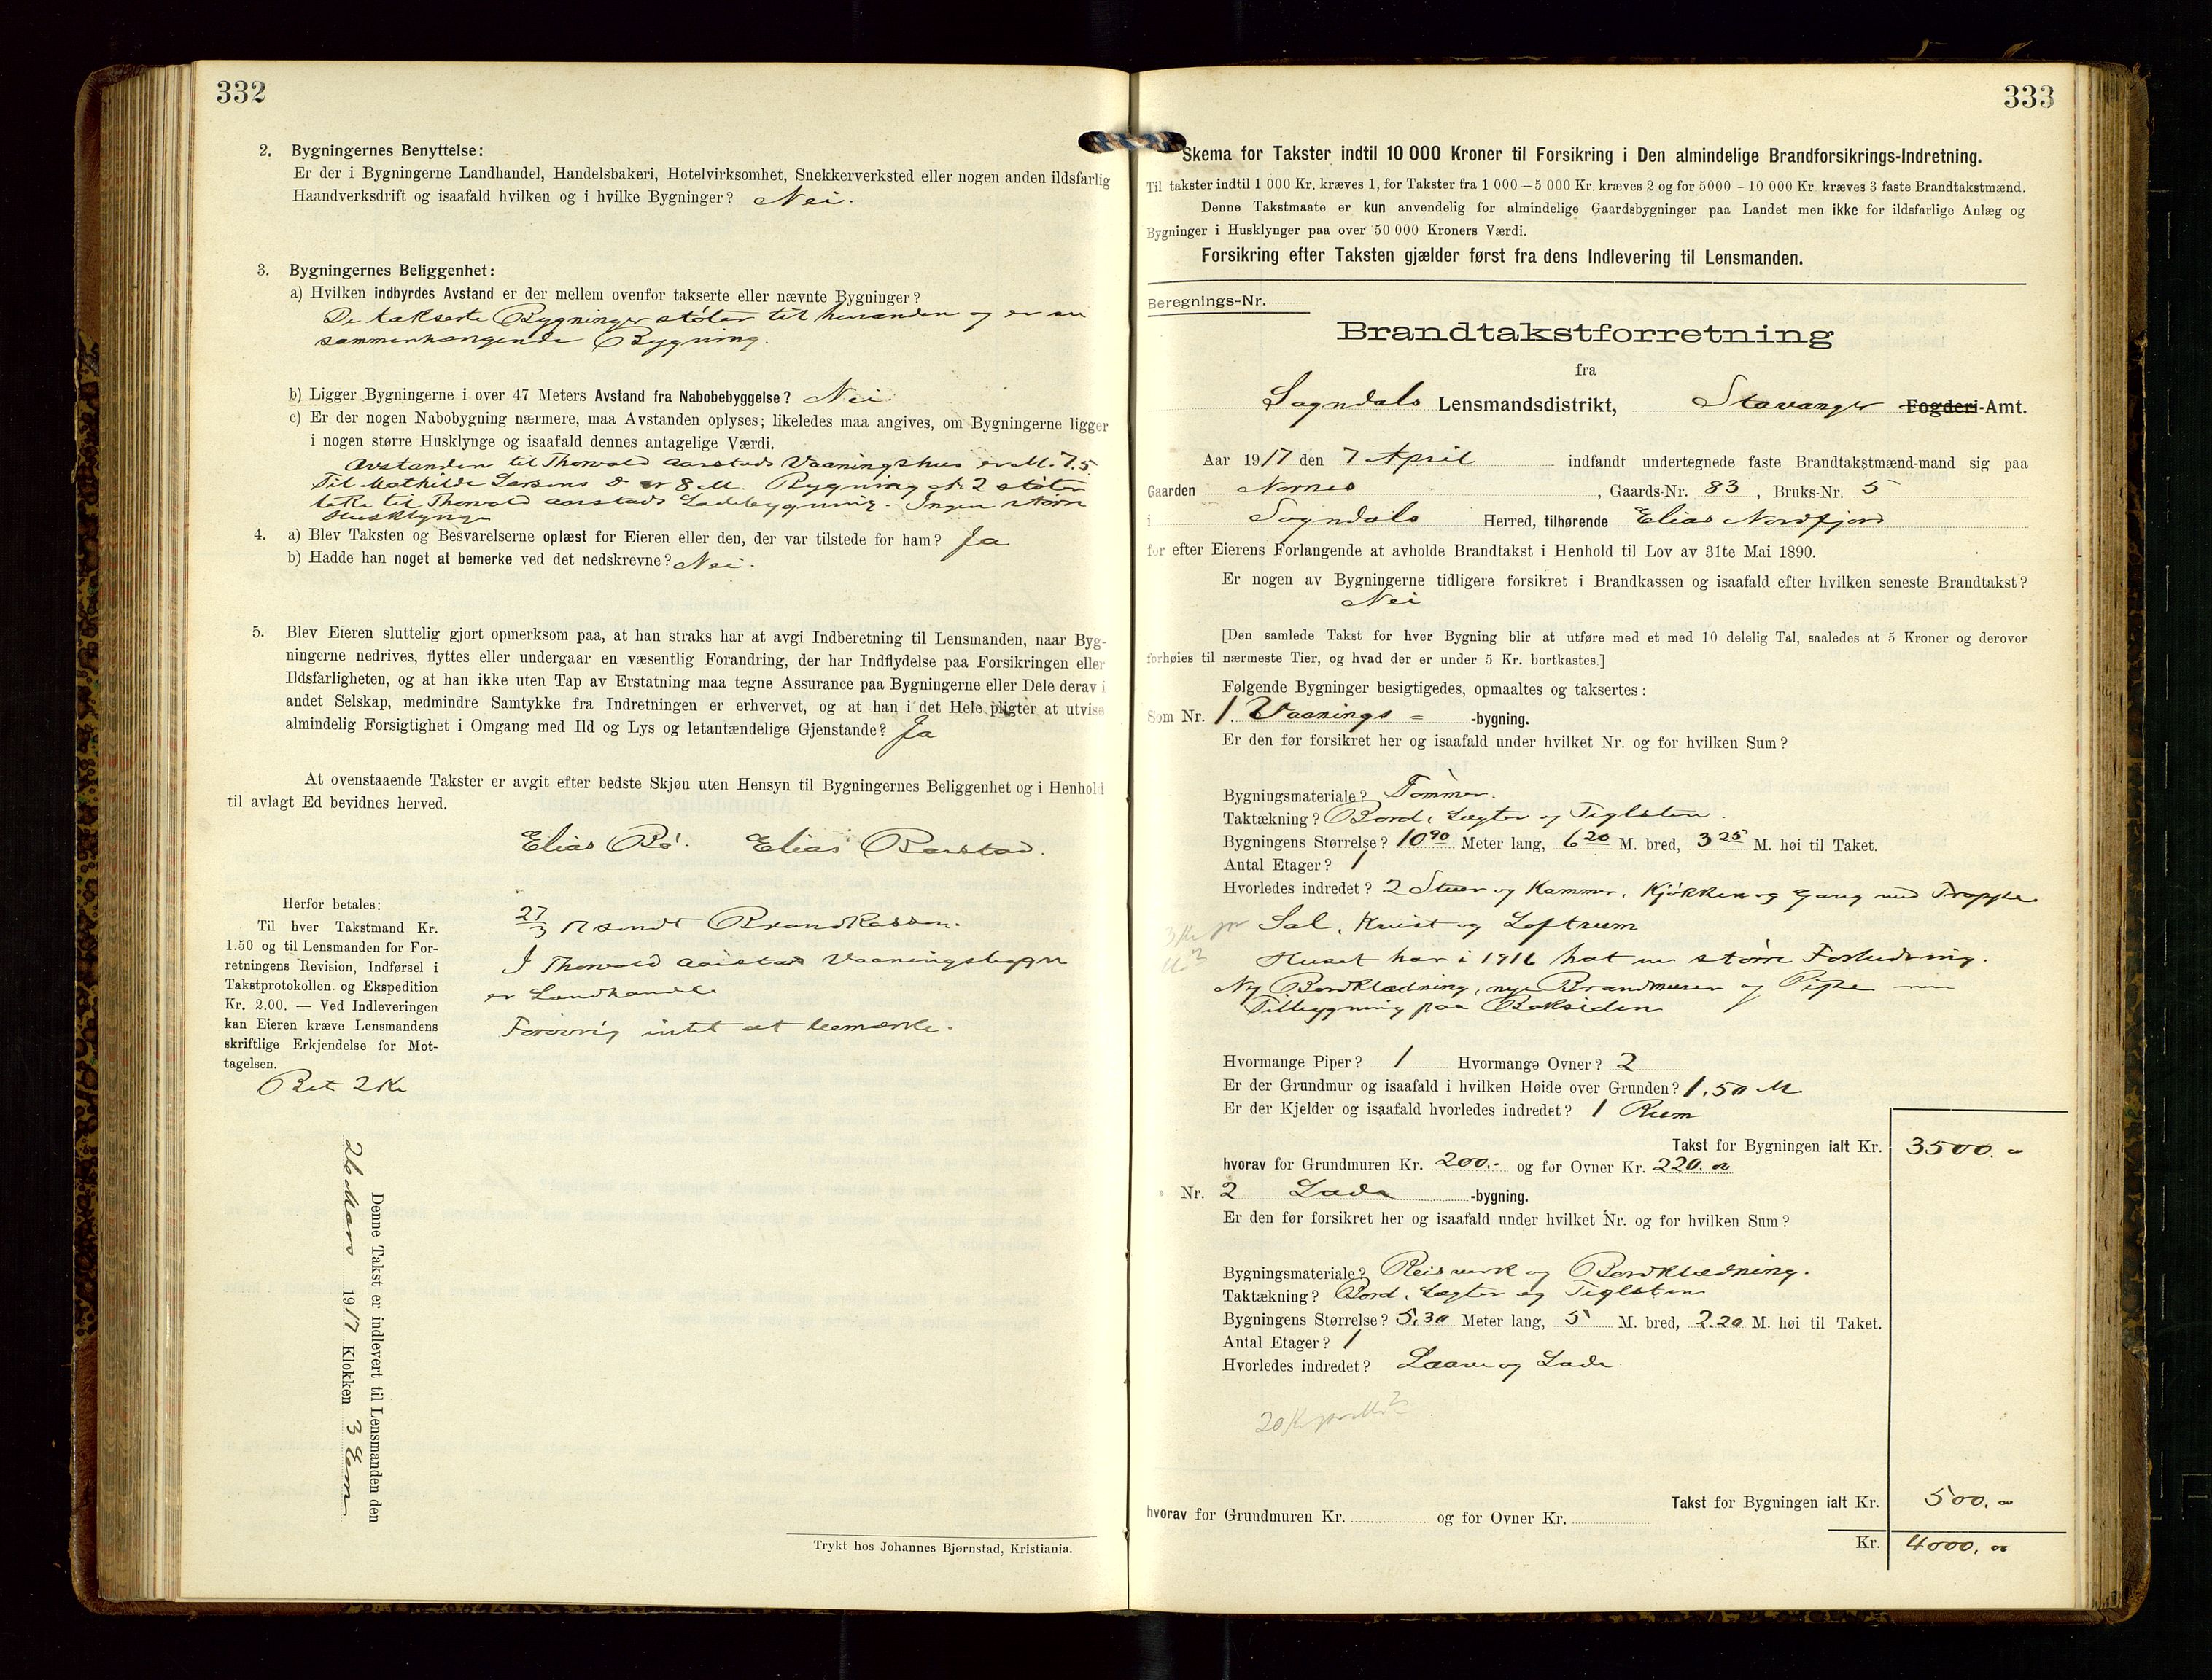 332
2. Bygningernes Benyttelse:
Er der i Bygningerne Landhandel, Handelsbakeri, Hotelvirksomhet, Snekkerverksted eller nogen anden ildsfarlig
Haandverksdrift og isaafald hvilken og i hvilke Bygninger? Nei.
3. Bygningernes Beliggenhet:
a) Hvilken indbyrdes Avstand er der mellem ovenfor takserte eller nævnte Bygninger?
De takserte Bygninger støter til hinanden og er en
sammenhængende Bygning.
b) Ligger Bygningerne i over 47 Meters Avstand fra Nabobebyggelse? Nei.
c) Er der nogen Nabobygning nærmere, maa Avstanden oplyses; likeledes maa angives, om Bygningerne ligger
i nogen større Husklynge og isaafald dennes antagelige Værdi.
Avstanden til Thorvald Aarstads Vaaningshus er M. 7.5
Til Mathilde Larsens er 8 M. Bygning No 2 støter
like til Thorvald Aarstads Ladebygning. Ingen større
Husklynge
4. a) Blev Taksten og Besvarelserne oplæst for Eieren eller den, der var tilstede for ham? Ja
b) Hadde han noget at bemerke ved det nedskrevne? Nei.
5. Blev Eieren sluttelig gjort opmerksom paa, at han straks har at avgi Indberetning til Lensmanden, naar Byg-
ningerne nedrives, flyttes eller undergaar en væsentlig Forandring, der har Indflydelse paa Forsikringen eller
Ildsfarligheten, og at han ikke uten Tap av Erstatning maa tegne Assurance paa Bygningerne eller Dele derav i
andet Selskap, medmindre Samtykke fra Indretningen er erhvervet, og at han i det Hele pligter at utvise
almindelig Forsigtighet i Omgang med Ild og Lys og letantændelige Gjenstande? Ja
At ovenstaaende Takster er avgit efter bedste Skjøn uten Hensyn til Bygningernes Beliggenhet og i Henhold
til avlagt Ed bevidnes herved.
Elias Bø. Elias Barstad.
Herfor betales:
Til hver Takstmand Kr.
1.50 og til Lensmanden for For-
retningens Revision, Indførsel i
Takstprotokollen og Ekspedition
Kr. 2.00. — Ved Indleveringen
kan Eieren kræve Lensmandens
skriftlige Erkjendelse for Mot-
tagelsen.
Bet 2 Kr
27/3 17 sendt Brandkassen.
I Thorvald Aarstads Vaaningsbygn
er Landhandel
Forøvrig intet at bemærke.
Denne Takst er indlevert til Lensmanden den
26 Mars 1917 Klokken 3 Em
Trykt hos Johannes Bjørnstad, Kristiania.
333
Skema for Takster indtil 10 000 Kroner til Forsikring i Den almindelige Brandforsikrings-Indretning.
Til takster indtil 1 000 Kr. kræves 1, for Takster fra 1 000 — 5 000 Kr. kræves 2 og for 5000 - 10 000 Kr kræves 3 faste Brandtakstmænd.
Denne Takstmaate er kun anvendelig for almindelige Gaardsbygninger paa Landet men ikke for ildsfarlige Anlæg og
Bygninger i Husklynger paa over 50 000 Kroners Værdi.
Forsikring efter Taksten gjælder først fra dens Indlevering til Lensmanden.
Beregnings-Nr.
Brandtakstforretning
fra
Sogndals Lensmandsdistrikt, Stavanger Fogderi-Amt.
Aar 1917 den 7 April indfandt undertegnede faste Brandtakstmænd-mand sig paa
Gaarden Nornes, Gaards-Nr. 83, Bruks-Nr. 5
i Sogndals Herred, tilhørende Elias Nordfjord
for efter Eierens Forlangende at avholde Brandtakst i Henhold til Lov av 31te Mai 1890.
Er nogen av Bygningerne tidligere forsikret i Brandkassen og isaafald efter hvilken seneste Brandtakst?
Nei
[Den samlede Takst for hver Bygning blir at utføre med et med 10 delelig Tal, saaledes at 5 Kroner og derover
forhøies til nærmeste Tier, og hvad der er under 5 Kr. bortkastes.]
Følgende Bygninger besigtigedes, opmaaltes og taksertes:
Som Nr. 1. Vaanings = -bygning.
Er den før forsikret her og isaafald under hvilket Nr. og for hvilken Sum?
Bygningsmateriale? Tømmer.
Taktækning? Bord, Lægter og Teglsten.
Bygningens Størrelse? 10 90 Meter lang, 6 20 M. bred, 3 25 M. høi til Taket.
Antal Etager? 1
Hvorledes indredet? 2 Stuer og Kammer, Kjøkken og Gang med Trappe
Sal, Kvist og Loftrum
3 Kr pr
M2
Huset har i 1916 hat en større Forbedring.
Ny Bordklædning, nye Brandmurer og Pipe
Tilbygning paa Baksiden
Hvormange Piper? 1 Hvormange Ovner? 2
Er der Grundmur og isaafald i hvilken Høide over Grunden? 1.50 M
Er der Kjelder og isaafald hvorledes indredet? 1 Rum
Takst for Bygningen ialt Kr. 3500. 00
hvorav for Grundmuren Kr. 200.- og for Ovner Kr. 220. 00
Nr. 2 Lade -bygning.
Er den før forsikret her og isaafald under hvilket Nr. og for hvilken Sum?
Bygningsmateriale? Reisverk og Bordklædning.
Taktækning? Bord, Lægter og Teglsten
Bygningens Størrelse? 5.30 Meter lang, 5 M. bred, 2.20 M. høi til Taket.
Antal Etager? 1
Hvorledes indredet? Laave og Lade
20 Kr pr M2
Takst for Bygningen ialt Kr. 500. 00
hvorav for Grundmuren Kr. og for Ovner Kr.
Kr. 4000. 00